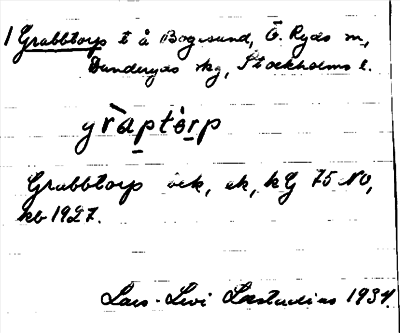 1 Grabbtorp t å Bogesund, Ö. Ryds sn,
Danderyds skg, Stockholms l.
gràptòrp
Grabbtorp eck, ek, kG 75 NO,
kb 1927.
Lars-Levi Læstadius 1934.